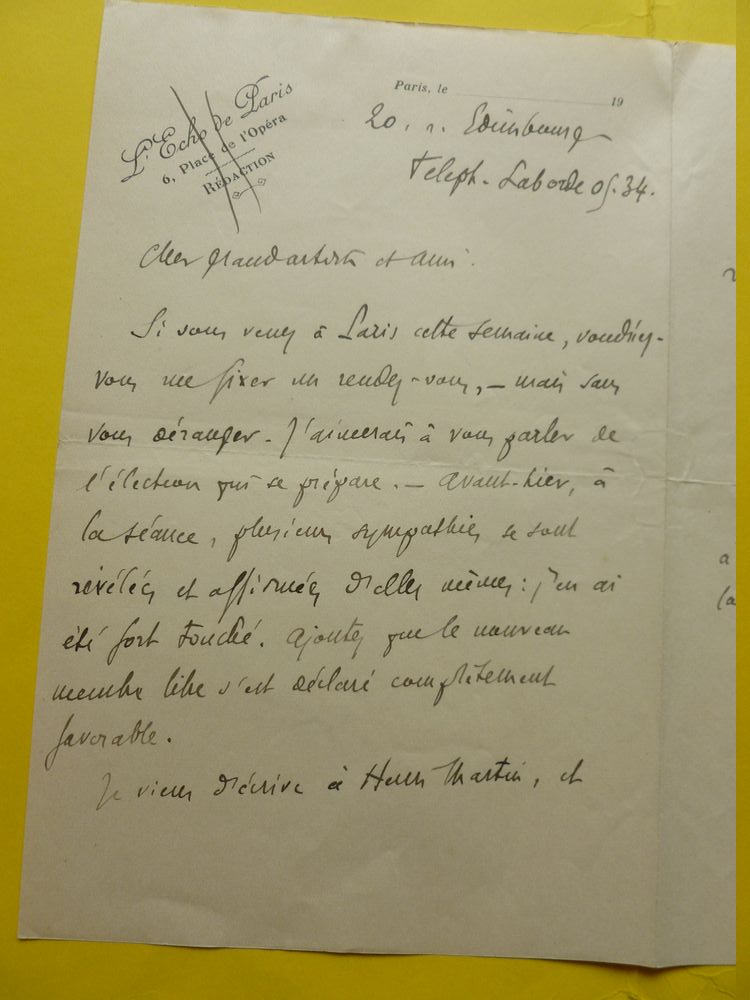 L'Echo de Paris
6, Place de l'Opéra
RÉDACTION
Paris, le 19
20. r. Edimbourg
Teleph. Laborde 05.34.
Cher grand artiste et ami.
Si vous venez à Paris cette semaine, voudriez-
vous me fixer un rendez-vous, — mais sans
vous déranger. J'aimerais à vous parler de
l'élection qui se prépare. — Avant-hier, à
la séance, plusieurs sympathies se sont
révélées et affirmées d'elles mêmes: j'en ai
été fort touché. Ajoutez que le nouveau
membre libre s'est déclaré complètement
favorable.
Je viens d'écrire à Henri Martin, et
a